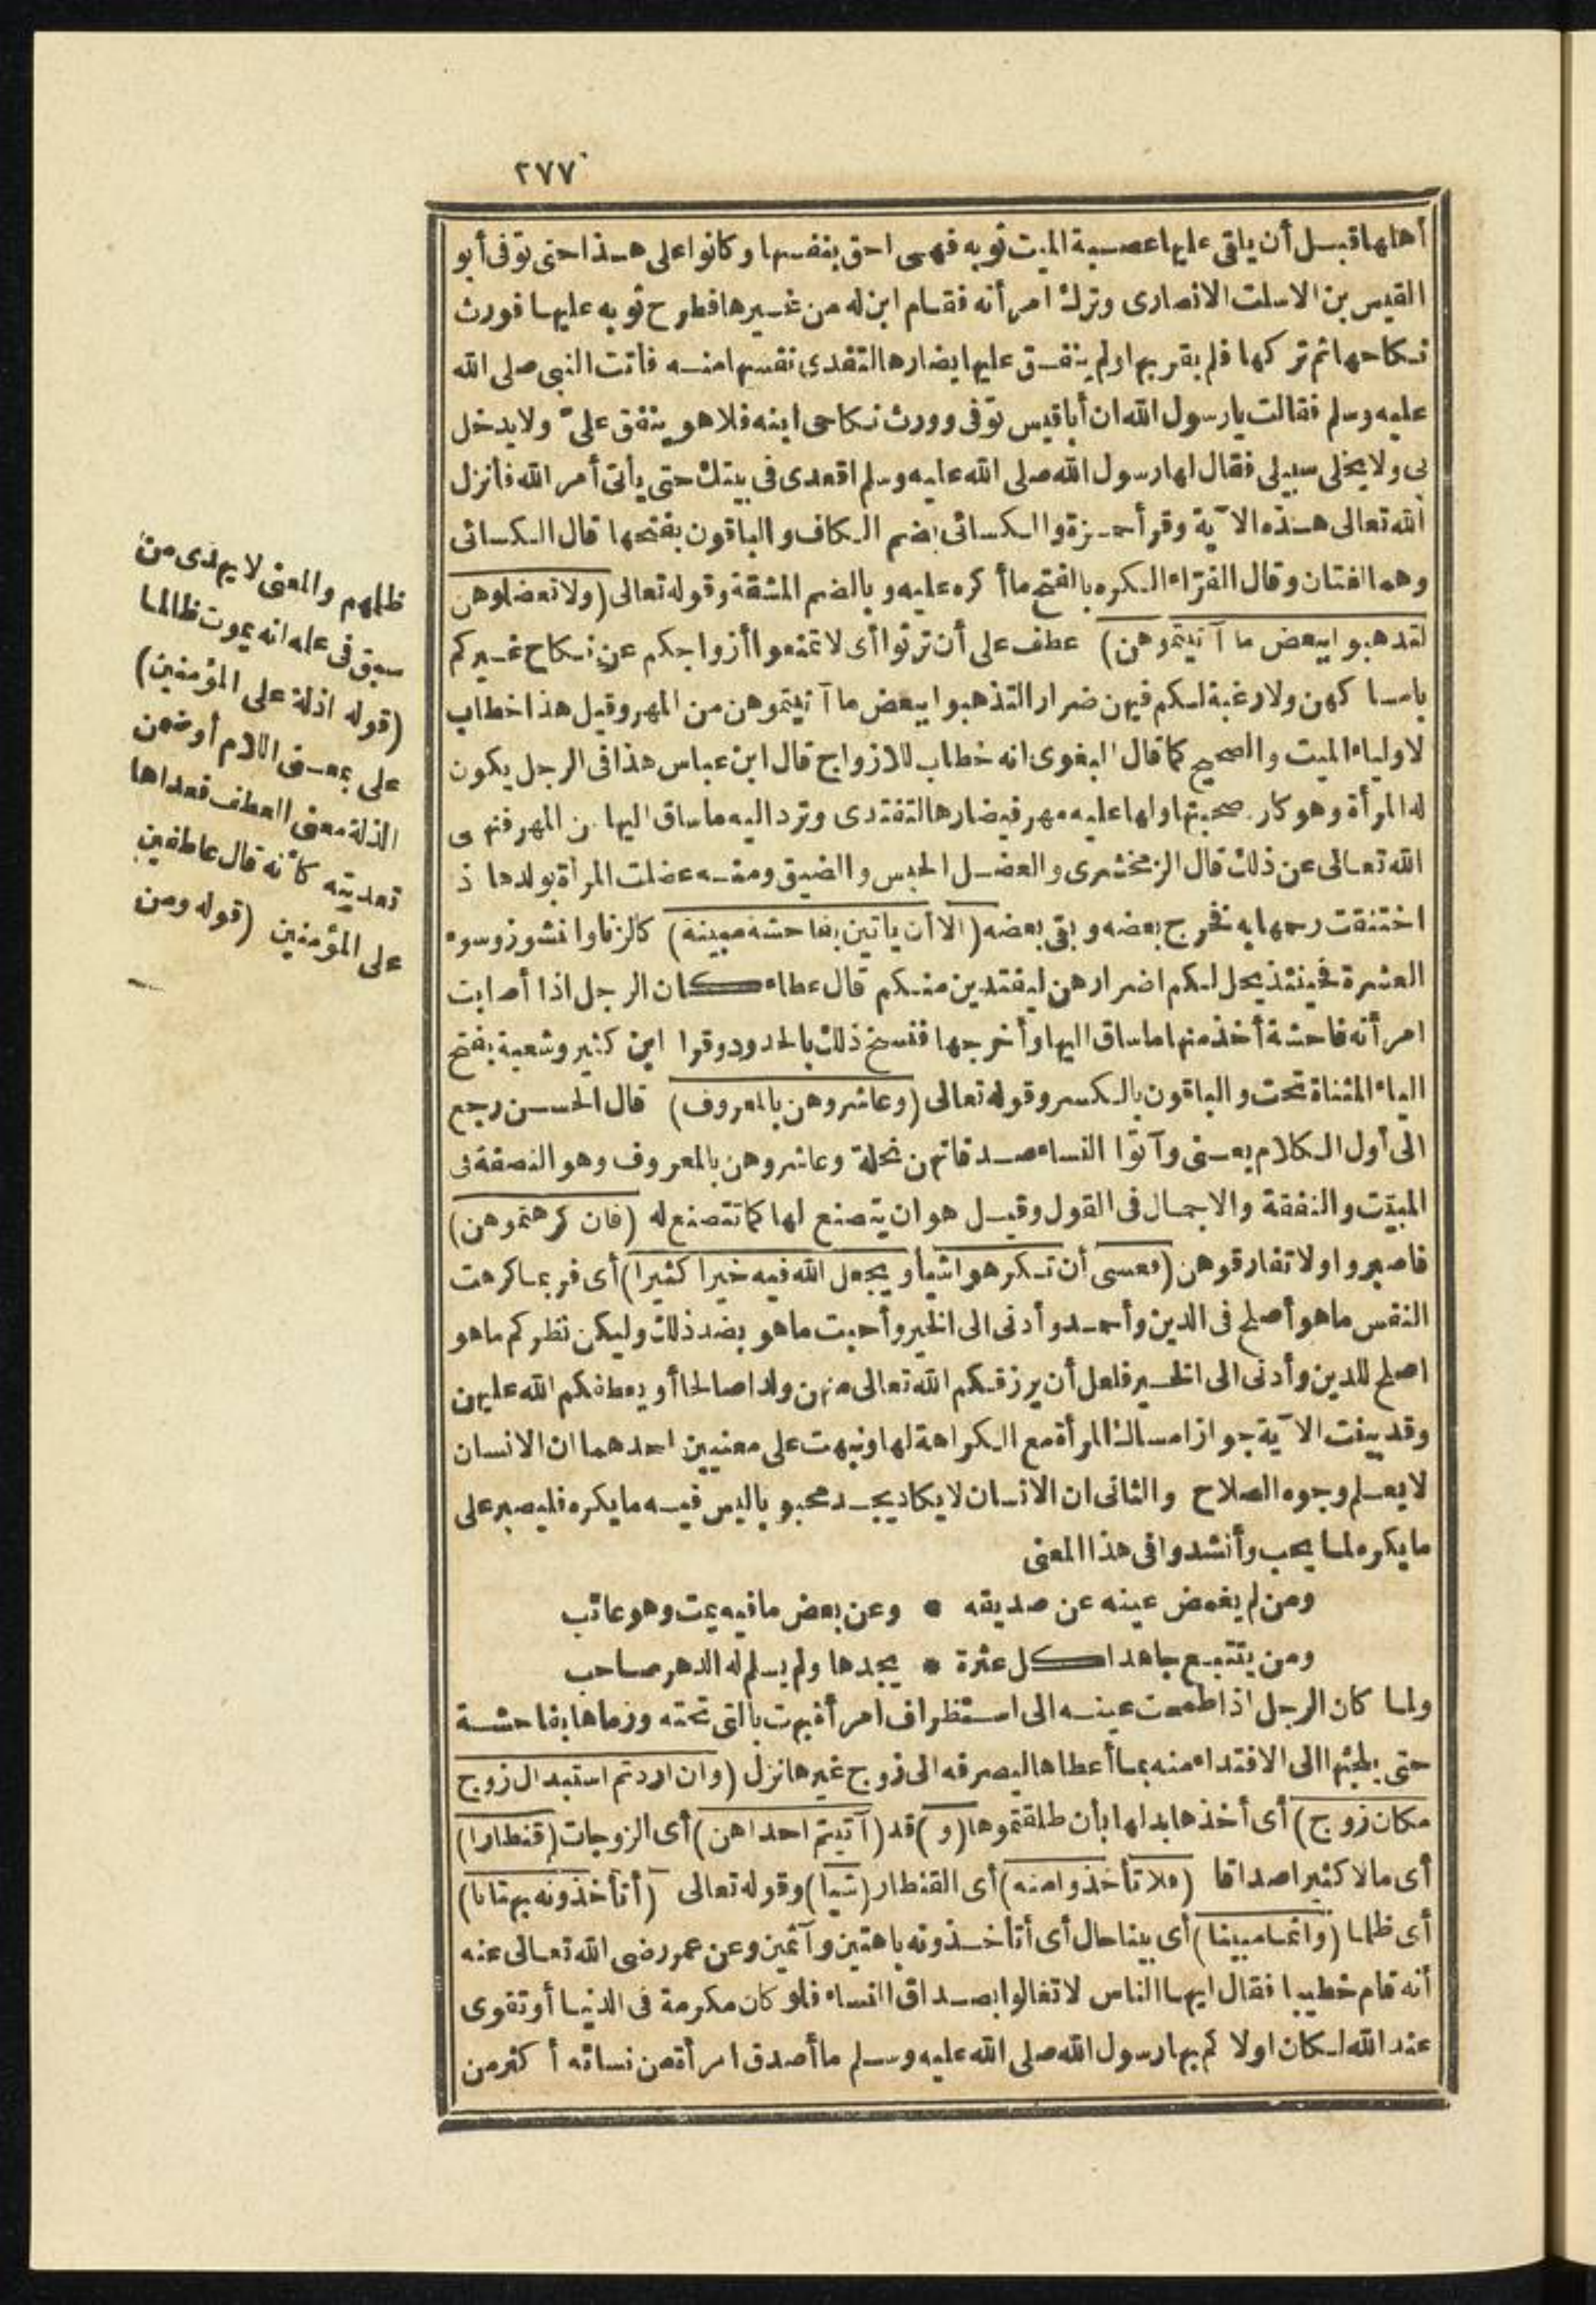 ٢٧٧
أهلها قبل أن يلقى عليها عصبة الميت ثوبه فهى احق بنفسها وكانوا على هذا حتى توفى أبو
القيس بن الاسلت الانصارى وترك امرأته فقام ابن له من غيرها فطرح ثوبه عليها فورث
نكاحها ثم تركها فلم يقربها ولم ينفق عليها يضارها لتفتدى نفسها منه فأتت النبى صلى الله
عليه وسلم فقالت يا رسول الله ان أبا قيس توفى وورث نكاحى ابنه فلا هو ينفق علىّ ولا يدخل
بى ولا يخلى سبيلى فقال لها رسول الله صلى الله عليه وسلم اقعدى فى بيتك حتى يأتى أمر الله فأنزل
الله تعالى هذه الآية وقرأ حمزة والكسائى بضم الكاف والباقون بفتحها قال الكسائى
وهما لغتان وقال الفرّاء الكره بالفتح ما أكره عليه وبالضم المشقة وقوله تعالى (ولا تعضلوهن
لتذهبوا ببعض ما آتيتموهن) عطف على أن ترثوا أى لا تمنعوا أزواجكم عن نكاح غيركم
بامساكهن ولا رغبة لكم فيهن ضرارا لتذهبوا ببعض ما آتيتموهن من المهر وقيل هذا خطاب
لاولياء الميت والصحيح كما قال البغوى انه خطاب للازواج قال ابن عباس هذا فى الرجل يكون
له المرأة وهو كاره صحبتها ولها عليه مهر فيضارها لتفتدى وترد اليه ما ساق اليها من المهر فنهى
الله تعالى عن ذلك قال الزمخشرى والعضل الحبس والضيق ومنه عضلت المرأة بولدها اذ
اختنقت رحمها به فخرج بعضه وبقى بعضه (الا أن يأتين بفاحشة مبينة) كالزنا والنشوز وسوء
العشرة فحينئذ يحل لكم اضرارهن ليفتدين منكم قال عطاء كان الرجل اذا أصابت
امرأته فاحشة أخذ منها ما ساق اليها وأخرجها فنسخ ذلك بالحدود وقرا ابن كثير وشعبة بفتح
الياء المثناة تحت والباقون بالكسر وقوله تعالى (وعاشروهن بالمعروف) قال الحسن رجع
الى أول الكلام يعنى وآتوا النساء صدقاتهن نحلة وعاشروهن بالمعروف وهو النصفة فى
المبيت والنفقة والاجمال فى القول وقيل هو ان يتصنع لها كما تتصنع له (فان كرهتموهن)
فاصبروا ولا تفارقوهن (فعسى أن تكرهوا شيأ ويجعل الله فيه خيرا كثيرا) أى فربما كرهت
النفس ما هو أصلح فى الدين وأحمد وأدنى الى الخير وأحبت ما هو بضد ذلك وليكن نظركم ما هو
اصلح للدين وأدنى الى الخير فلعل أن يرزقكم الله تعالى منهن ولدا صالحا أو يعطفكم الله عليهن
وقد بينت الآية جواز امساك المرأة مع الكراهة لها ونبهت على معنيين احدهما ان الانسان
لا يعلم وجوه الصلاح والثانى ان الانسان لا يكاد يجد محبوبا ليس فيه ما يكره فليصبر على
ما يكره لما يحب وأنشدوا فى هذا المعنى
ومن لم يغمض عينه عن صديقه • وعن بعض ما فيه يمت وهو عاتب
ومن يتتبع جاهدا كل عثرة • يجدها ولم يسلم له الدهر صاحب
ولما كان الرجل اذا طمحت عينه الى استظراف امرأة بهت بالتى تحته ورماها بفاحشة
حتى يلجئها الى الافتداء منه بما أعطاها ليصرفه الى زوج غيرها نزل (وان اردتم استبدال زوج
مكان زوج) أى أخذها بدلها بأن طلقتموها (و) قد (آتيتم احداهن) أى الزوجات (قنطارا)
أى مالا كثيرا صداقا (فلا تأخذوا منه) أى القنطار (شيأ) وقوله تعالى (أتأخذونه بهتانا)
أى ظلما (واثما مبينا) أى بينا حال أى أتأخذونه باهتين وآثمين وعن عمر رضى الله تعالى عنه
أنه قام خطيبا فقال ايها الناس لا تغالوا بصداق النساء فلو كان مكرمة فى الدنيا أو تقوى
عند الله لكان اولاكم بها رسول الله صلى الله عليه وسلم ما أصدق امرأة من نسائه أكثر من
ظلمهم والمعنى لا يهدى من
سبق فى علمه انه يموت ظالما
(قوله اذلة على المؤمنين)
على بمعنى اللام أو ضمن
الذلة معنى العطف فعداها
تعديته كأنه قال عاطفين
على المؤمنين (قوله ومن